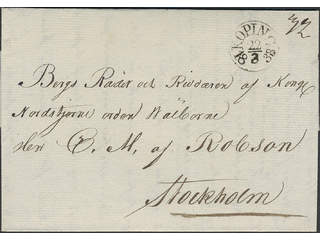 KÖPING
22
18 3 38
Bergs Rådet och Riddaren af Kongl
Nordstjerne orden Wälborne
Herr C. M. af Robson
Stockholm